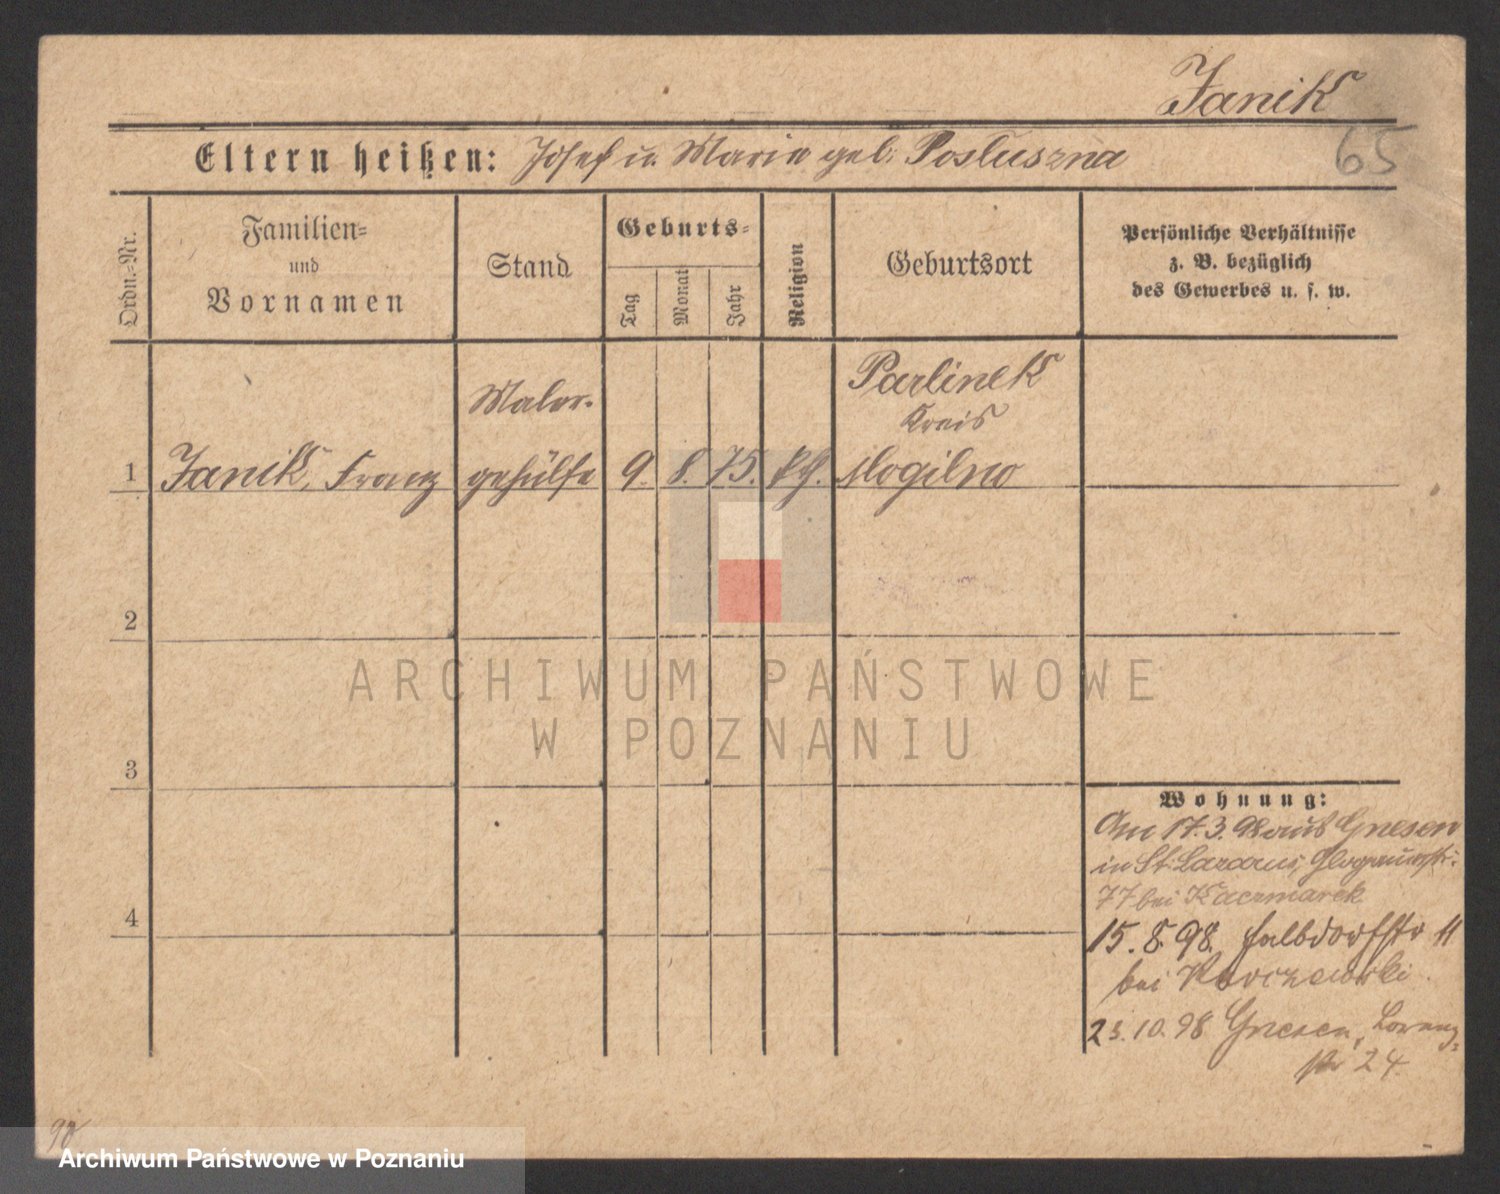 Janik
65
Eltern heißen: Josef u. Marie geb. Posluszna
Ordn.-Nr.
Familien-
und
Vornamen
Stand
Geburts-
Tag
Monat
Jahr
Religion
Geburtsort
Persönliche Verhältnisse
z. B. bezüglich
des Gewerbes u. s. w.
1
Janik, Franz
Maler-
gehülfe
9. 8. 75. kth.
Parlinek
Kreis
Mogilno
2
3
4
Wohnung:
Am 17.3.98 aus Gnesen
in St. Lazarus, Glogauerstr.
77 bei Kaczmarek
15.8.98. Halbdorfstr 11
bei
23.10.98 Gnesen, Lorenz-
str 24
98
ARCHIWUM PAŃSTWOWE
W POZNANIU
Archiwum Państwowe w Poznaniu